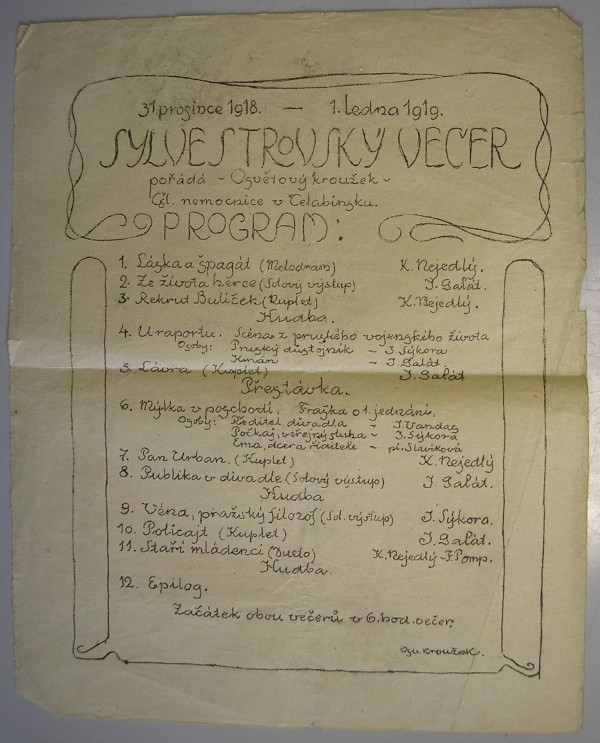 31. prosince 1918. — 1. ledna 1919.
SYLVESTROVSKÝ VEČER
pořádá - Osvětový kroužek -
Čsl. nemocnice v Čelabinsku.
PROGRAM:
1. Láska a špagát (Melodram) K. Nejedlý.
2. Ze života herce (Solový výstup) J. Galát.
3. Rekrut Bulíček. (Kuplet) K. Nejedlý.
Hudba.
4. U raportu. Scéna z pruského vojenského života
Osoby: Pruský důstojník - J. Sýkora
- J. Galát.
5. Láura (Kuplet) J. Galát
Přestávka.
6. Mýlka v poschodí. Fraška o 1. jednání.
Osoby: Ředitel divadla - J. Vandas
Počkaj, veřejný sluha - J. Sýkora
Ema, dcera ředitele - pí. Slavíková
7. Pan Urban. (Kuplet) K. Nejedlý
8. Publika v divadle (Solový výstup) J. Galát.
Hudba
9. Véna, pražský filozof (Sol. výstup) J. Sýkora.
10. Policajt (Kuplet) J. Galát.
11. Staří mládenci (Dueto) K. Nejedlý - F. Pomp.
Hudba.
12. Epilog.
Začátek obou večerů v 6. hod. večer.
Osv. kroužek.